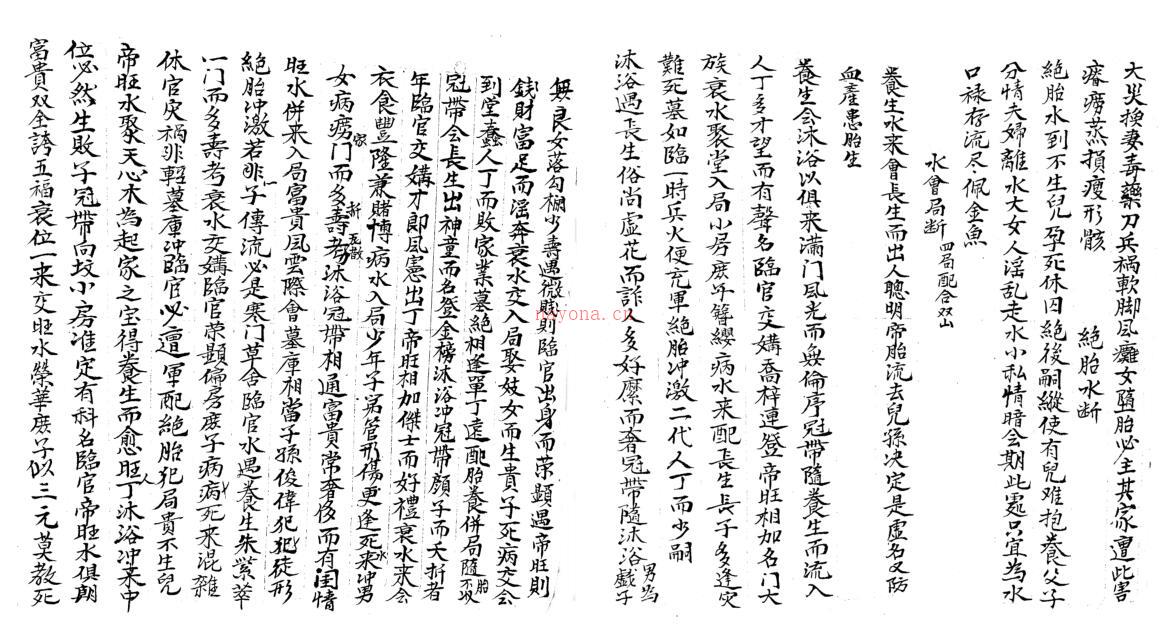 大災換妻毒藥刀兵禍軟脚風癱女墮胎必主其家遭此害
瘵癆蒸損瘦形骸
絶胎水断
絶胎水到不生兒孕死休囚絶後嗣縱使有兒难抱養父子
分情夫婦離水大女人淫乱走水小私情暗会期此處只宜為水
口禄存流尽佩金魚
水會局断 四局配合双山
養生水来會長生而出人聰明帝胎流去兒孫决定是虛名又防
血產患胎生
養生会沐浴以俱来滿門风光而無倫序冠帶隨養生而流入
人丁多才望而有聲名臨官交媾喬梓連登帝旺相加名门大
族衰水聚堂入局小房庶子簪纓病水来配長生長子多逢灾
難死墓如臨一時兵火便充軍絶胎冲激二代人丁而少嗣
沐浴遇長生俗尚虛花而詐人多好縻而奢冠帶隨沐浴男為戲子
無良女落勾欄少壽遇微賤則臨官出身而荣顕遇帝旺則
錢財富足而滛奔衰水交入局娶妓女而生貴子死病交会
到堂蠢人丁而敗家業墓絶相逢單丁遠配胎養併局隨胎不收
冠帶会長生出神童而名登金榜沐浴冲冠帶顔子而夭折者
年臨官交媾才郎风憲出丁帝旺相加傑士而好禮衰水来会
衣食豐隆兼賭博病水入局少年子弟管形傷更逢死来冲男
女病癆家门而多壽考沐浴冠帶相通富貴常奢侈而有闺情
旺水併来入局富貴风雲際會墓庫相當子孫俊偉犯犯徒形
絶胎冲激若非子傳流必是寒门草舍臨官水遇養生朱紫萃
一门而多壽考衰水交媾臨官荣顕偏房庶子病病死来混雜
休官灾禍非輕墓庫冲臨官必遭軍配絶胎犯局貴不生兒
帝旺水聚天心木為起家之宝得養生而愈旺人丁沐浴冲来中
位必然生敗子冠帶向坟小房准定有科名臨官帝旺水俱朝
富貴双全誇五福衰位一来交旺水榮華庶子似三元莫教死
nayona.cn